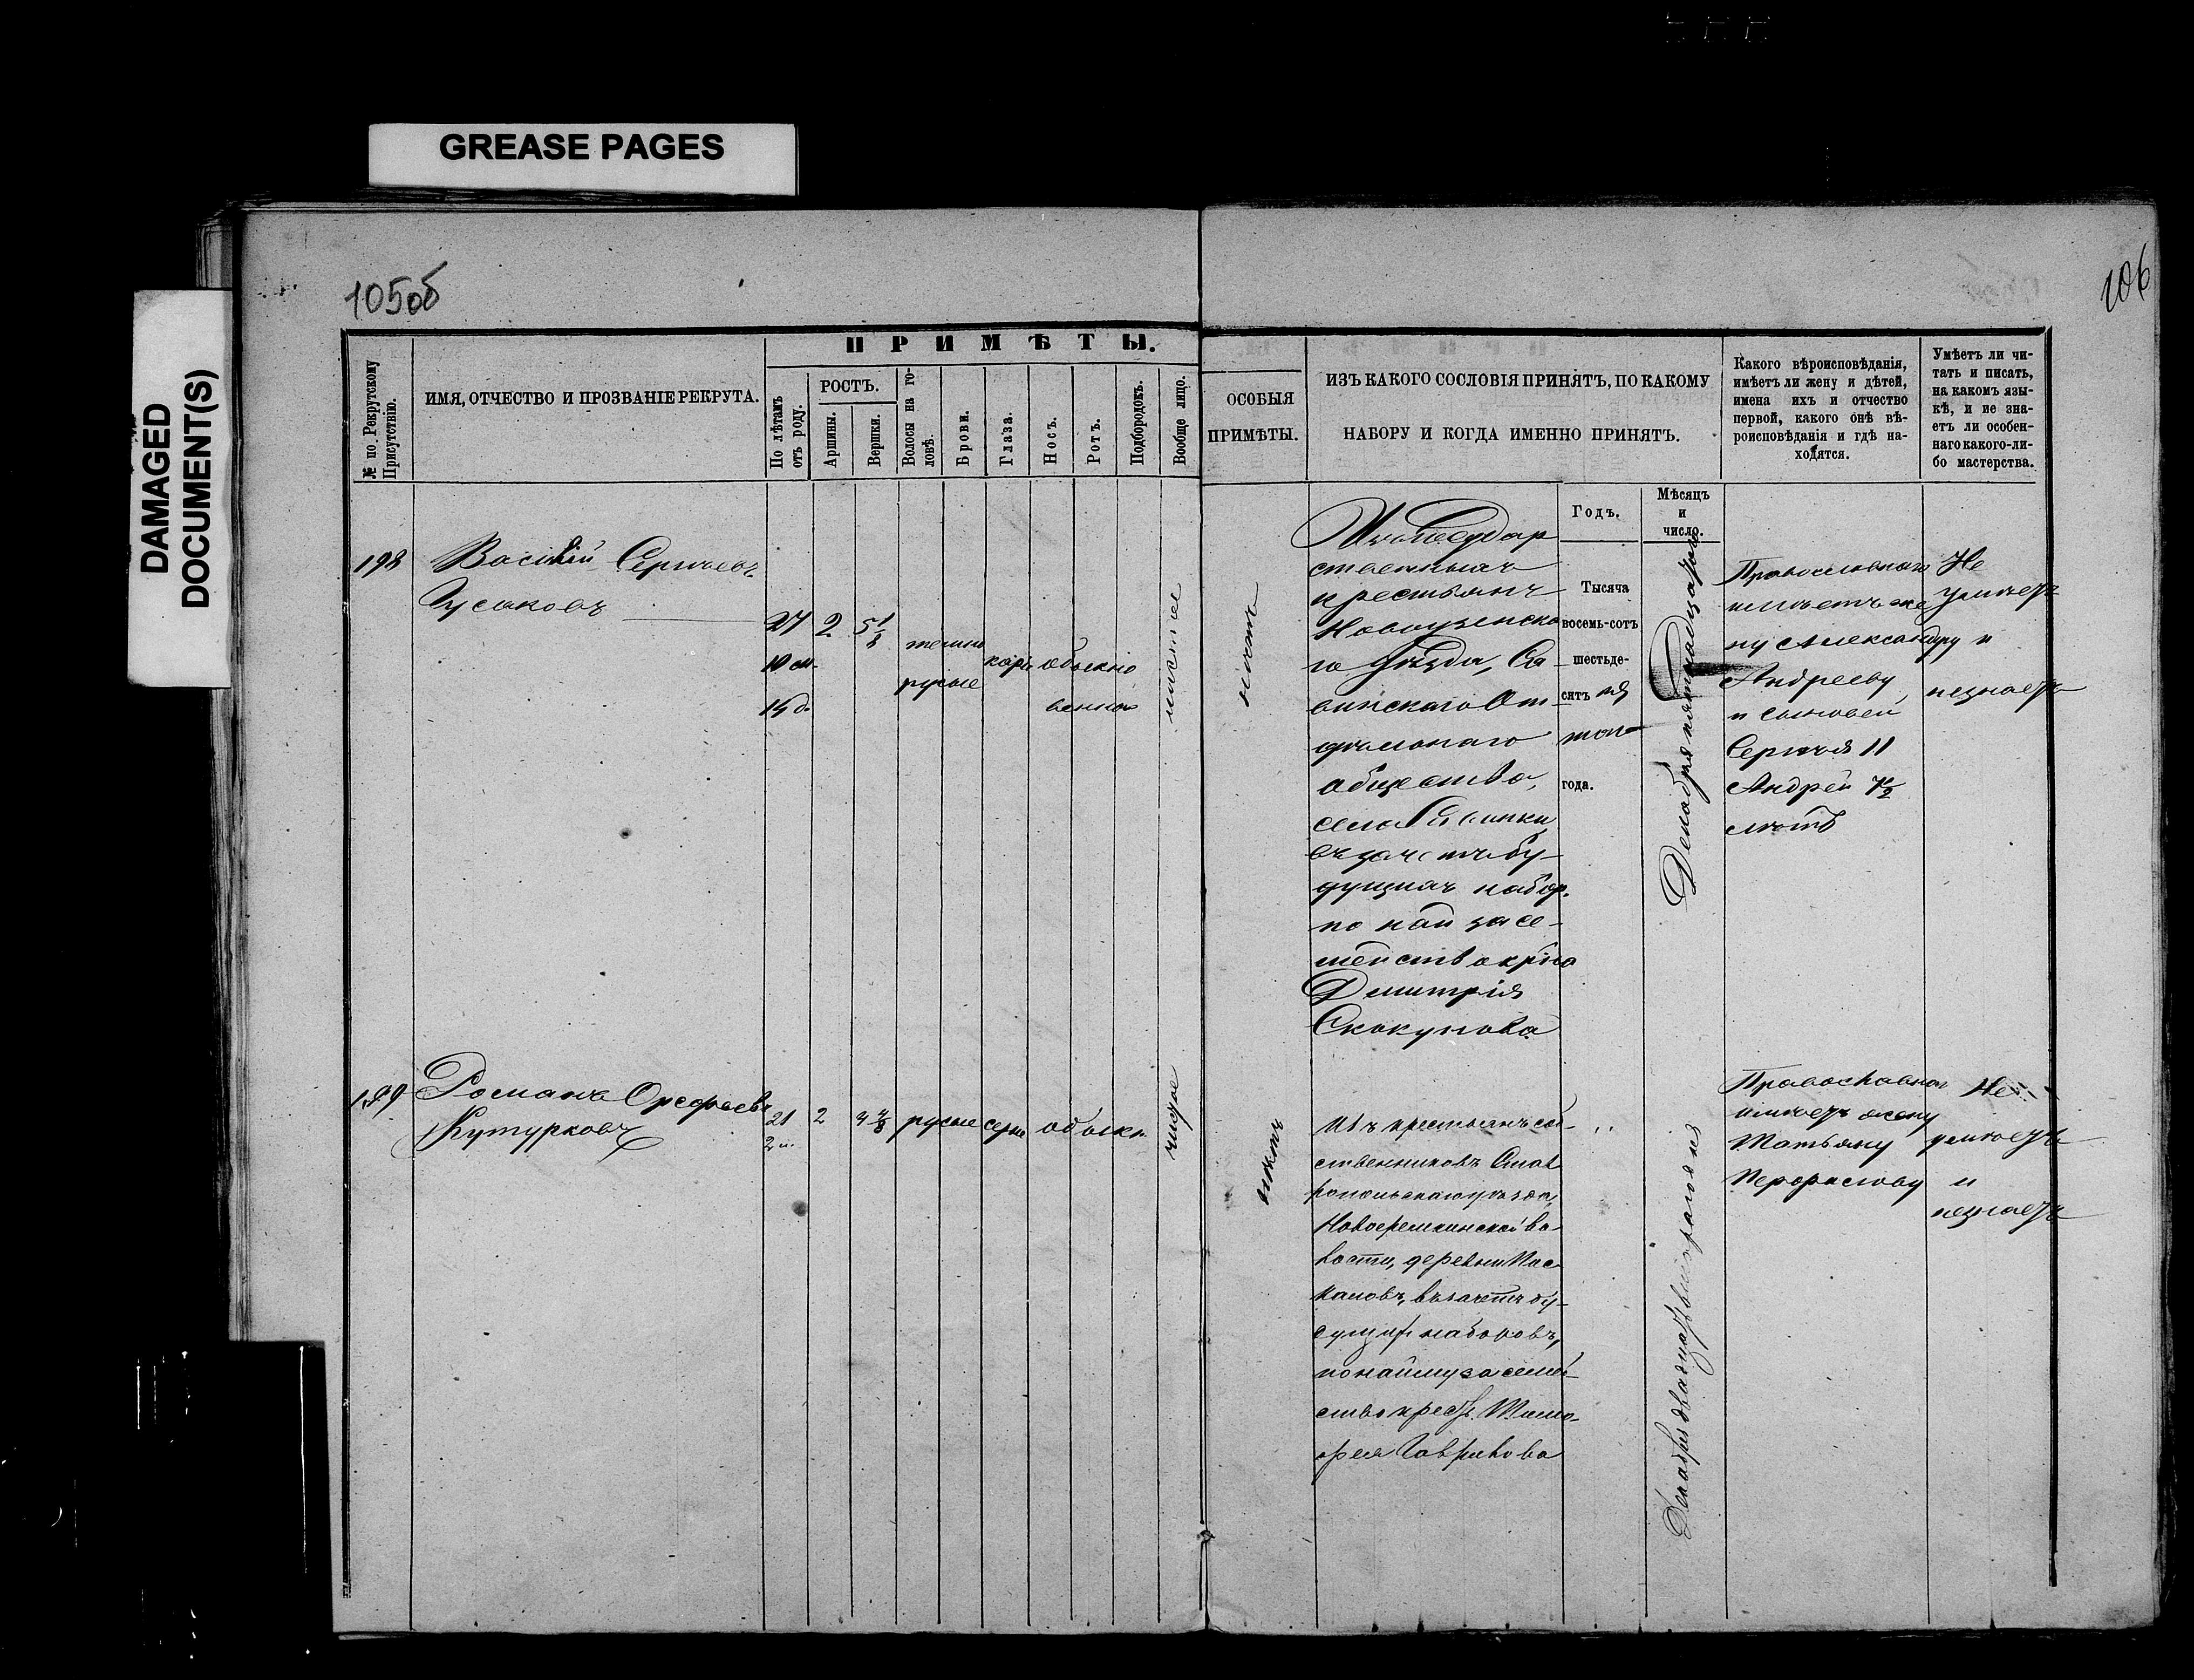 GREASE PAGES
DAMAGED
DOCUMENT(S)
105об
106
ПРИМѢТЫ.
№ по Рекрутскому
Присутствію.
ИМЯ, ОТЧЕСТВО И ПРОЗВАНІЕ РЕКРУТА.
По лѣтамъ
отъ роду.
РОСТЪ.
Аршины.
Вершки.
Волосы на го-
ловѣ.
Брови.
Глаза.
Носъ.
Ротъ.
Подбородокъ.
Вообще лицо.
ОСОБЫЯ
ПРИМѢТЫ.
ИЗЪ КАКОГО СОСЛОВІЯ ПРИНЯТЪ, ПО КАКОМУ
НАБОРУ И КОГДА ИМЕННО ПРИНЯТЪ.
Какого вѣроисповѣданія,
имѣетъ ли жену и дѣтей,
имена ихъ и отчество
первой, какого онѣ вѣ-
роисповѣданія и гдѣ на-
ходятся.
Умѣетъ ли чи-
тать и писать,
на какомъ язы-
кѣ, и не зна-
етъ ли особен-
наго какого-ли-
бо мастерства.
Годъ.
Мѣсяцъ
и
число.
198
Василій Сергѣевъ
Гусаковъ
27
10 м.
15 д.
2
5 1/8
темно
русые
каріе
обыкно
венно
чистое
нѣтъ
Изъ Государ
ственныхъ
крестьянъ
Новоузенска
го Уѣзда, Са
винскаго От
дѣльнаго
общества,
села Савинки
въ зачетъ бу-
дущихъ набор.
по най за се-
мейство кр-на
Дмитрія
Скокунова
Тысяча
восемь-сотъ
шестьде-
сятъ пя
томъ
года.
Декабря пятнадцатаго
Православнаго
имѣетъ же
ну Александру
Андрееву
и сыновей
Сергѣя 11
Андрей 7 1/2
лѣтъ
Не
умѣетъ
и
незнаетъ
199
Романъ Орефьевъ
Кутурковъ
21
2 м.
2
4 4/8
русые
серые
обыкн.
чистое
нѣтъ
Изъ крестьянъ соб-
ственниковъ Став
ропольскаго уѣзда,
Новоеремкинской во-
лости, деревни
въ зачетъ бу-
дущихъ наборовъ,
по найму за семей-
ство крест. Тимо-
фея Гаврикова
Декабря двадцать
Православнаго
имѣетъ жену
Татьяну
Перфилову
Не
умѣетъ
и
незнаетъ